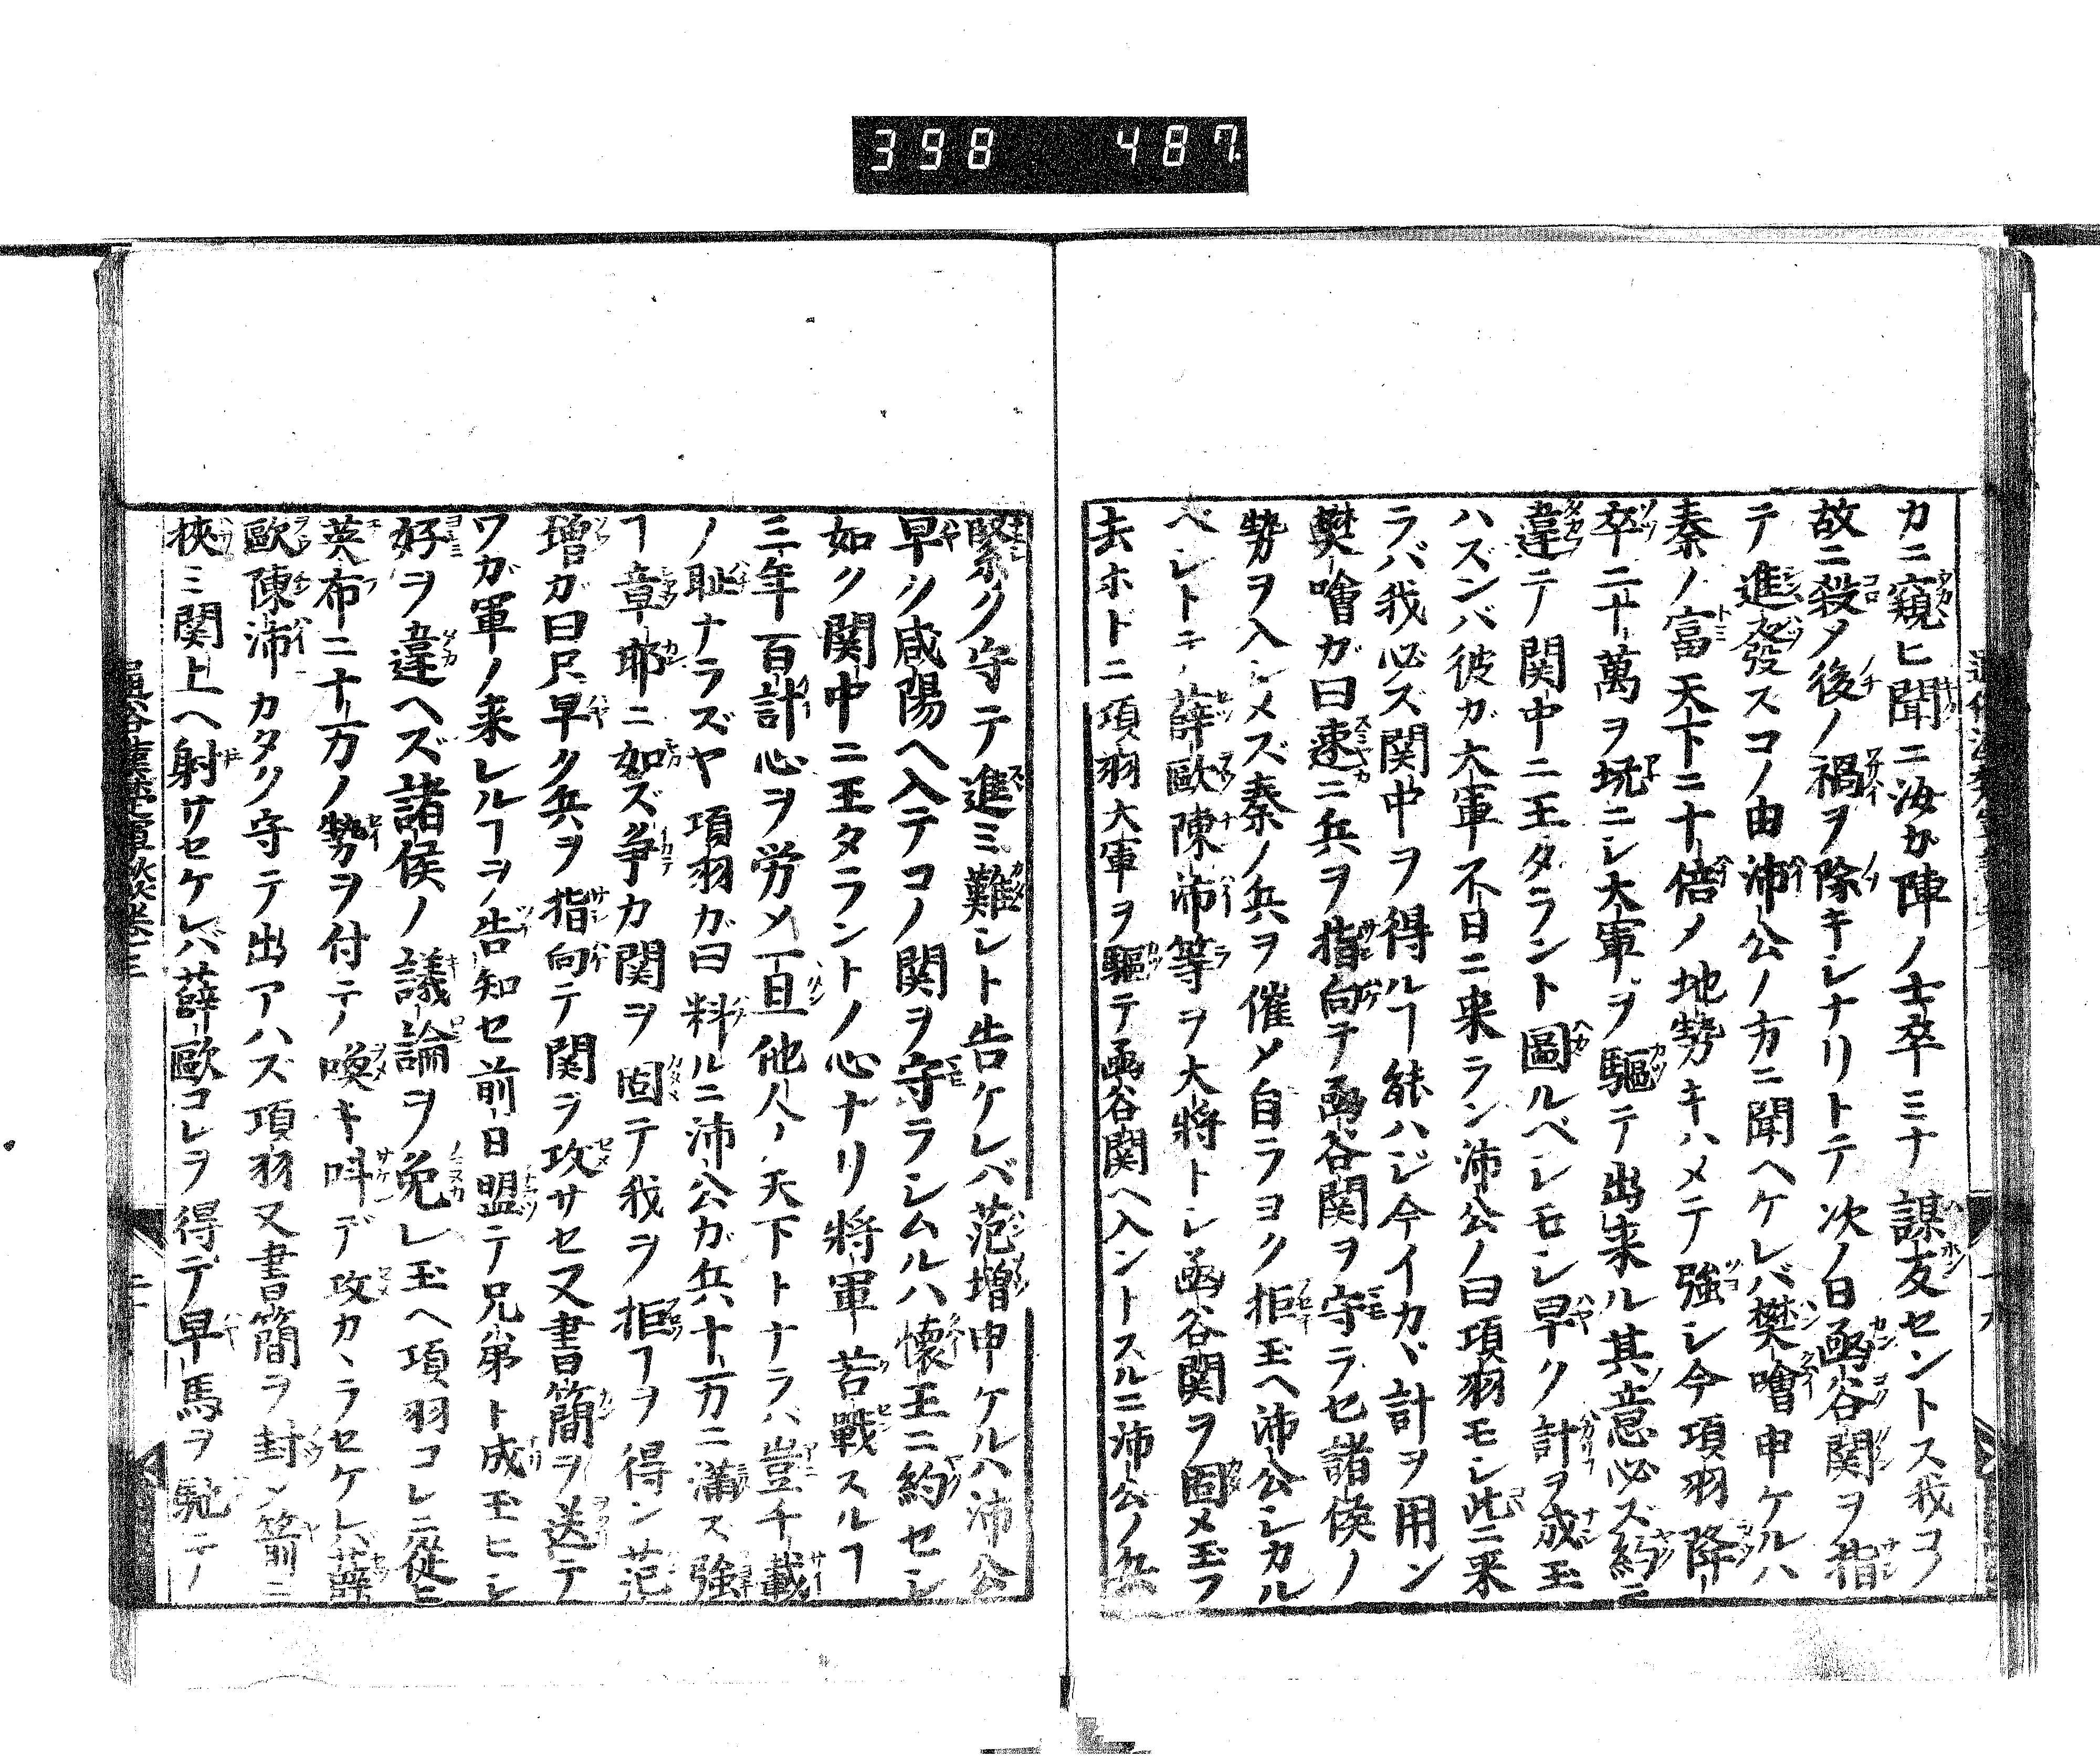 398 487
カニ窺ヒ聞ニ汝カ陣ノ士卒ミナ謀友セントス我コノ
故ニ殺タ後ノ禍ヲ除キシナリトテ次ノ日函谷関ヲ指
テ進發スコノ由沛公ノ方ニ聞ヘケレバ樊噲申ケルハ
秦ノ富天下ニ十倍ノ地勢キハメテ強シ今項羽降
卒二十萬ヲ坑ニシ大軍ヲ驅テ出来ル其意必ズ約ニ
違テ関中ニ王タラント圖ルベシモシ早ク計ヲ成玉
ハズンバ彼ガ大軍不日ニ来ラン沛公ノ曰項羽モシ此ニ来
ラバ我必ズ関中ヲ得ルヿ能ハジ今イカヾ計ヲ用ン
樊噲ガ曰速ニ兵ヲ指向テ函谷関ヲ守ラセ諸侯ノ
勢ヲ入シメズ秦ノ兵ヲ催メ自ラヨク拒玉ヘ沛公シカル
ベシトテ薛歐陳沛等ヲ大將トシ函谷関ヲ固メ玉フ
去ホトニ項羽大軍ヲ驅テ函谷関ヘ入ントスルニ沛公ノ兵
緊ク守テ進ミ難シト告ケレバ范増申ケルハ沛公
早ク咸陽ヘ入テコノ関ヲ守ラシムルハ懐王ニ約セシ
如ク関中ニ王タラントノ心ナリ將軍苦戰スルヿ
三年百計心ヲ労メ一旦他人ノ天下トナラバ豈千載
ノ耻ナラズヤ項羽ガ曰料ルニ沛公ガ兵十万ニ滿ス強
ヿ章耶ニ如ズ争カ関ヲ固テ我ヲ拒ヿヲ得ン范
増ガ曰只早ク兵ヲ指向テ関ヲ攻サセ又書簡ヲ送テ
ワガ軍ノ来レルヿヲ告知セ前日盟テ兄弟ト成玉ヒシ
好ヲ違ヘズ諸侯ノ議論ヲ免レ玉ヘ項羽コレニ從ヒ
英布ニ十万ノ勢ヲ付テ喚キ叫デ攻カヽラセケレバ薛
歐陳沛カタク守テ出アハズ項羽又書簡ヲ封シ箭ニ
挾ミ関上ヘ射サセケレバ薛歐コレヲ得デ早馬ヲ馳テ